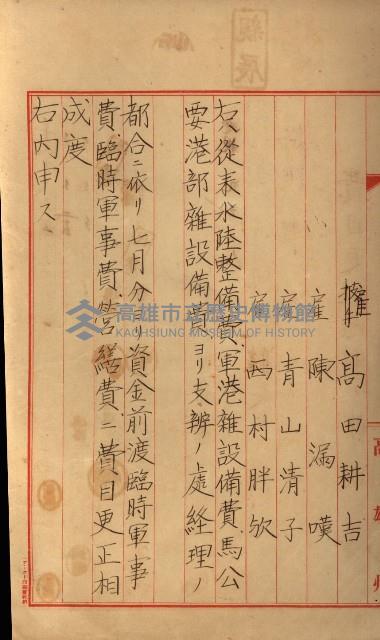 雇 髙田耕吉
〃 雇 陳漏嘆
雇 青山清子
雇 西村胖欤
右ハ従来水陸整備費、軍港雑設備費、馬公
要港部雑設備費ヨリ支辨ノ處経理ノ
都合ニ依リ七月分ヨリ資金前渡臨時軍事
費、臨時軍事費、営繕費ニ費目更正相
成度
右内申ス
親展
高雄州
高雄市立歷史博物館
KAOHSIUNG MUSEUM OF HISTORY